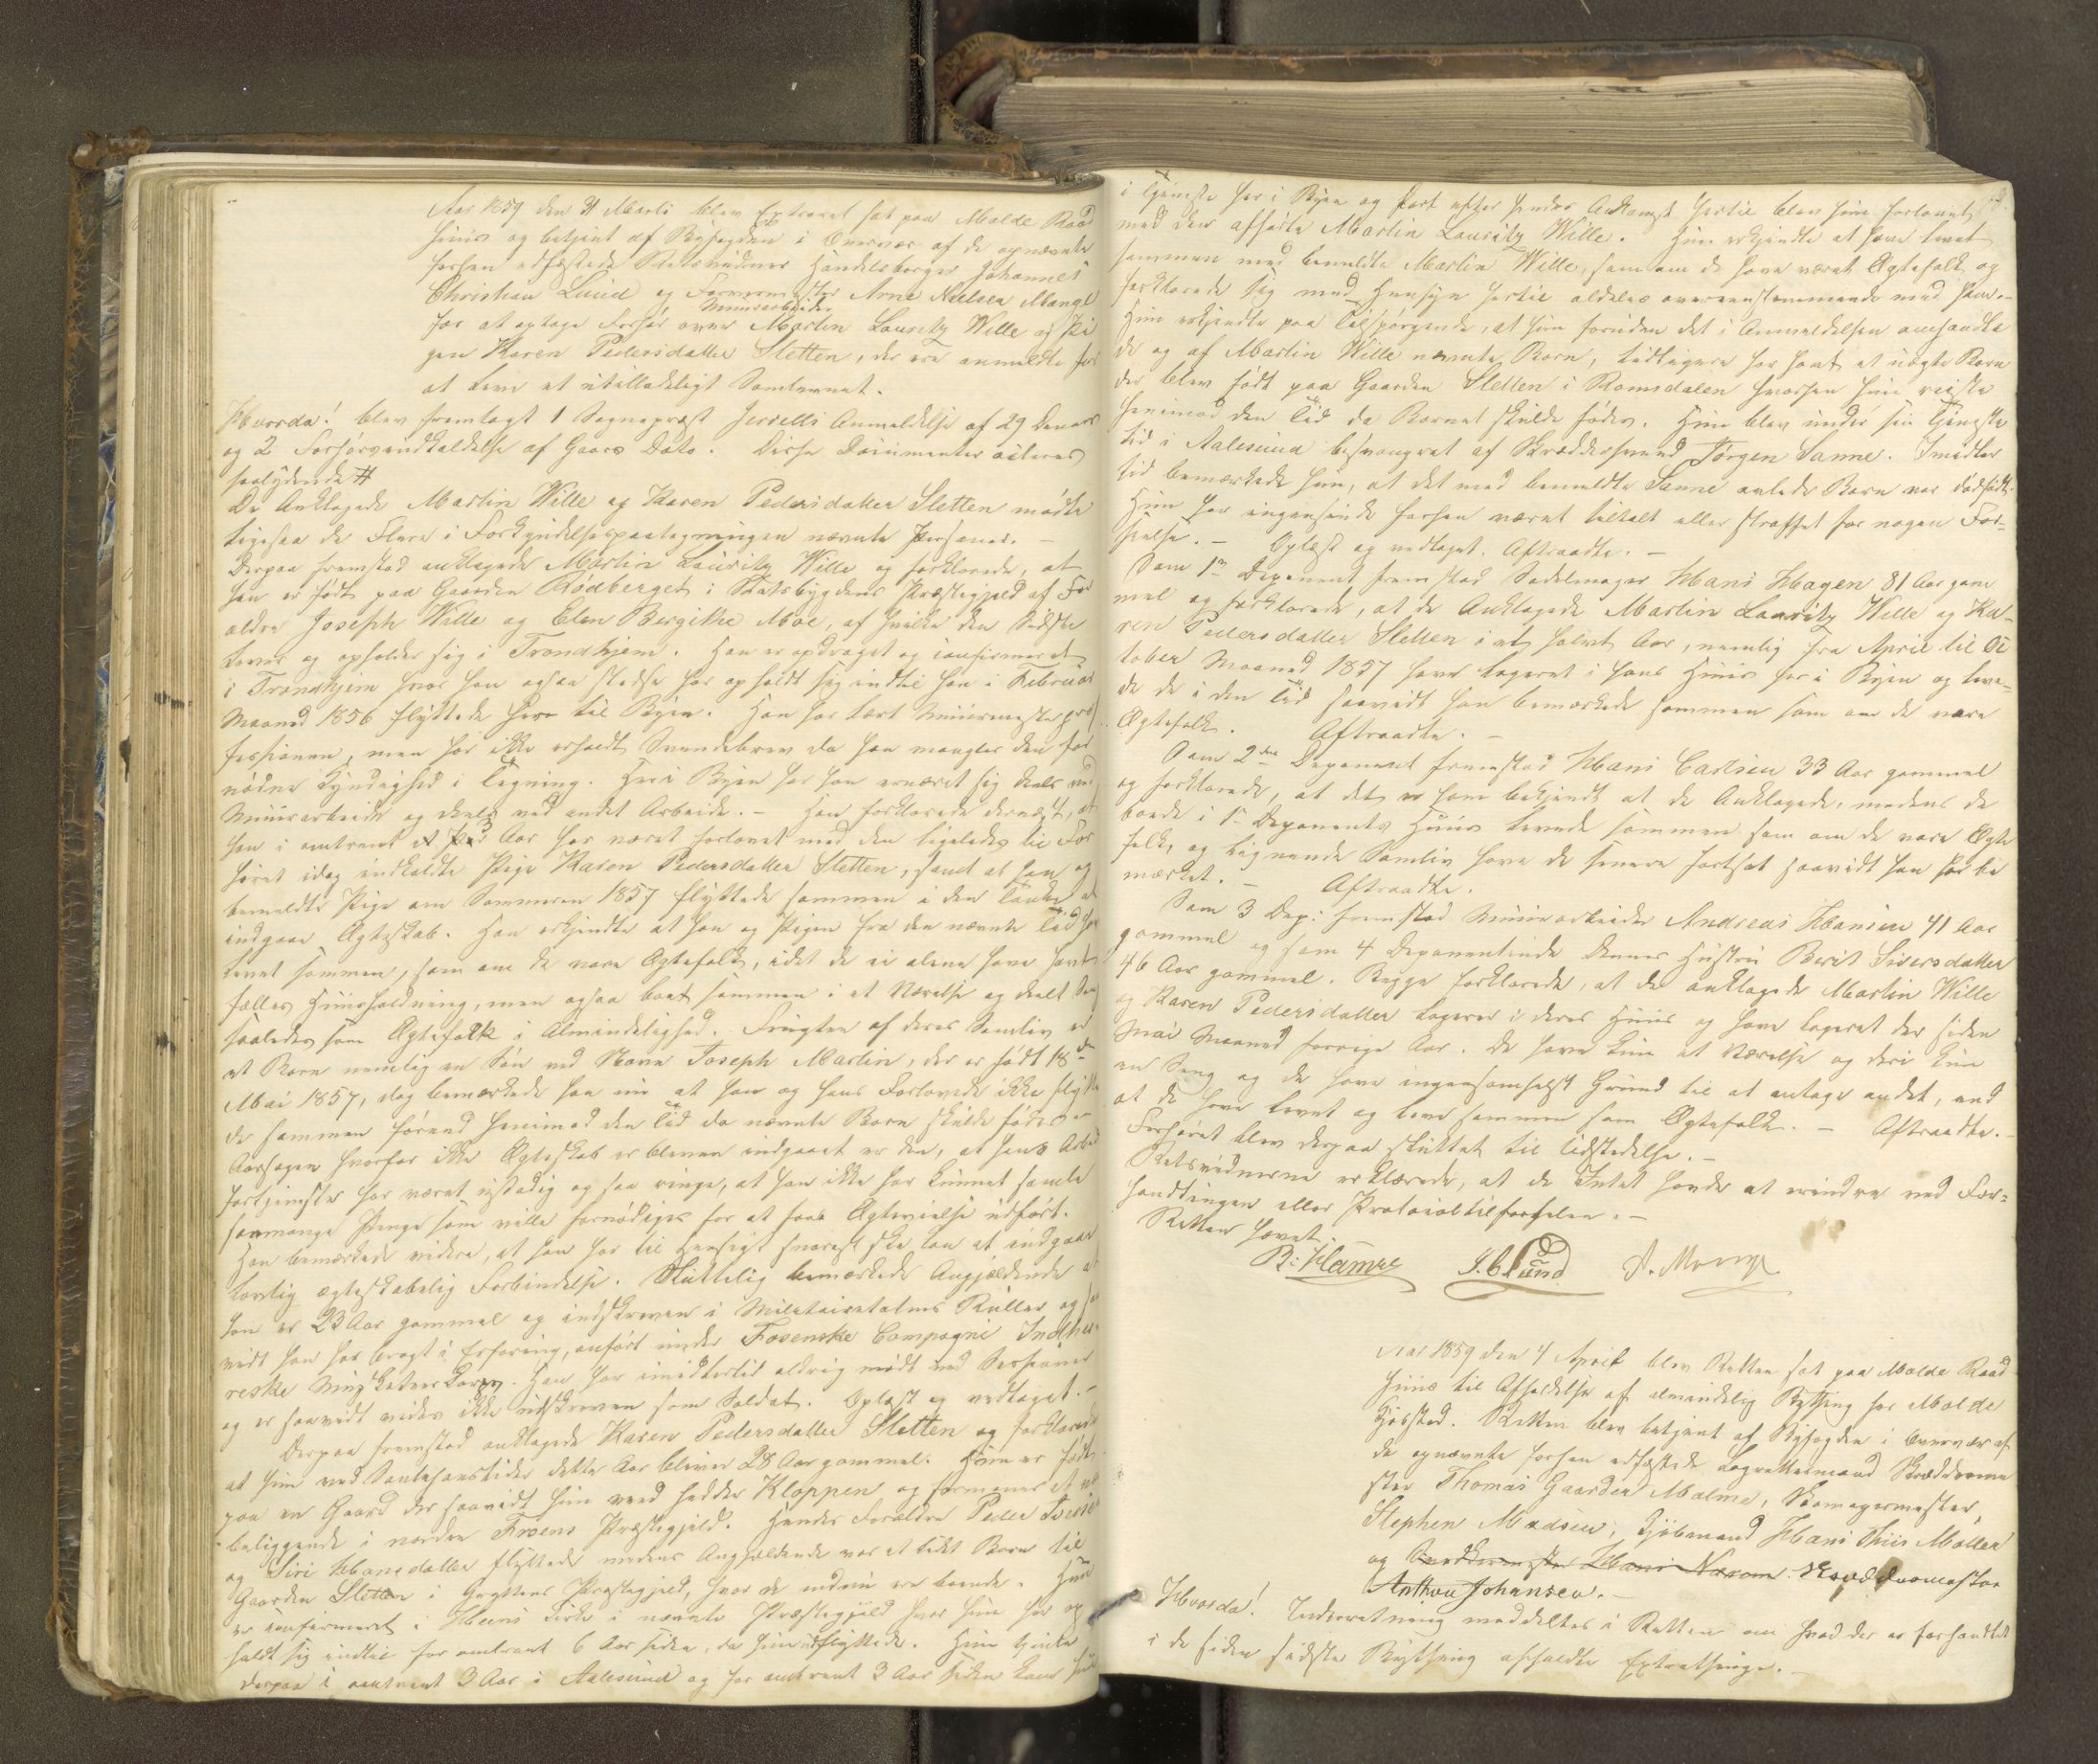 Aar 1859 den 31 Marts blev Extraret sat paa Molde Raad
huus og betjent af Byfogden i Overvær af de opnævnte
forhen edfæstede Retsvidner Handelsborger Johannes
Christian Lund og Farvermester Arne Nielsen Mange
Muurarbeider
for at optage Forhør over Martin Lauritz Wille og Pi
gen Karen Pedersdatter Sletten, der ere anmeldte for
at leve et utilladeligt Samlevnet.
Hvorda! blev fremlagt 1 Sognepræst Jervells Anmeldelse af 29
og 2 Forhørsindkaldelse af Gaars Dato. Disse Documenter acteres
saalydende #
De Anklagede Martin Wille og Karen Pedersdatter Sletten mødte
ligesaa de Flere i Forkyndelsespaategningen nævnte Personer. —
Derpaa fremstod anklagede Martin Lauritz Wille og forklarede, at
han er født paa Gaarden Rödberget i Statsbygdens Præstegjeld af For
ældre Joseph Wille og Elen Bergithe Moe, af hvilke den Sidste
lever og opholder sig i Trondhjem. Han er opdraget og confirmeret
i Trondhjem hvor han ogsaa stedse har opholdt sig indtil han i Februar
Maaned 1856 flyttede her til Byen. Han har lært Muurmesterpro
fessionen, men har ikke erholdt Svendebrev da han mangler den for
nødne Kyndighed i Tegning. Her i Byen har han ernæret sig deels ved
Muurarbeide og deels ved andet Arbeide. — Han forklarede dernæst, at
han i omtrent 3 Aar har været forlovet med den ligeledes til For
høret idag indkaldte Pige Karen Pedersdatter Sletten, samt at han og
bemeldte Pige om Sommeren 1857 flyttede sammen i den Tanke at
indgaae Ægteskab. Han erkjendte at han og Pigen fra den nævnte Tid har
levet sammen, som om de vare Ægtefolk, idet de ei alene have havt
fælles Huusholdning, men ogsaa boet sammen i et Værelse og deelt Seng
saaledes som Ægtefolk i Almindelighed. Frugten af deres Samliv er
et Barn nemlig en Søn ved Navn Joseph Martin, der er født 18de
Mai 1857, dog bemærkede han nu at han og hans Forlovede ikke flytte
de sammen førend henimod den Tid da nævnte Barn skulde fødes.
Aarsagen hvorfor ikke Ægteskab er bleven indgaaet er den, at hans Arbeids
fortjeneste har været ustadig og saa ringe, at han ikke har kunnet samle
saamange Penge som ville fornødiges for at faae Ægtevielse udført.
Han bemærkede videre, at han har til Hensigt snarest ske kan at indgaae
lovlig ægteskabelig Forbindelse. Sluttelig bemærkede Angjældende at
han er 23 Aar gammel og indskreven i Militairetatens Ruller og saa
vidt han har bragt i Erfaring, anført under Fosenske Compagni Indher-
reske Musketeercorps. Han har imidlertid aldrig mødt ved Sessioner
og er saavidt vides ikke udskreven som Soldat. Oplæst og vedtaget. —
Derpaa fremstod anklagede Karen Pedersdatter Sletten og forklarede
at hun ved Sanktehanstider dette Aar bliver 28 Aar gammel. Hun er født
paa en Gaard der saavidt hun veed hedder Kloppen og formener at være
beliggende i nordre Froens Præstegjeld. Hendes Forældre Peder
og Siri Hansdatter flyttede medens Angjældende var et lidet Barn til
Gaarden Sletten i Gryttens Præstegjeld, hvor de endnu ere boende. Hun
er confirmeret i Heens Kirke i nævnte Præstegjeld hvor hun har op
holdt sig indtil for omtrent 6 Aar siden, da hun udflyttede. Hun tjente
derpaa i omtrent 3 Aar i Aalesund og for omtrent 3 Aar siden kom hun
i Tjeneste her i Byen og kort efter hendes Ankomst hertil blev hun forlovet
med den afhørte Martin Lauritz Wille. Hun erkjendte at have levet
sammen med bemeldte Martin Wille, som om de have været Ægtefolk og
forklarede sig med Hensyn hertil aldeles overeensstemmende med ham. —
Hun erkjendte paa Tilspørgende, at hun foruden det i Anmeldelsen omhandle
de og af Martin Wille nævnte Barn, tidligere har havt et uægte Barn
der blev født paa Gaarden Sletten i Romsdalen hvorhen hun reiste
henimod den Tid da Barnet skulde fødes. Hun blev under sin Tjeneste
tid i Aalesund besvangret af Skræddersvend Jørgen Sanne. Imidler
tid bemærkede hun, at det med bemeldte Sanne avlede Barn var dødfødt.
Hun har ingensinde forhen været tiltalt eller straffet for nogen For-
seelse. — Oplæst og vedtaget. Aftraadte. —
Som 1ste Deponent fremstod Sadelmager Hans Hagen 81 Aar gam
mel og forklarede, at de Anklagede Martin Lauritz Wille og Ka-
ren Pedersdatter Sletten i et halvt Aar, nemlig fra April til Oc
tober Maaned 1857 have logeret i hans Huus her i Byen og leve-
de de i den Tid saavidt han bemærkede sammen som om de vare
Ægtefolk. Aftraadte. —
Som 2den Deponent fremstod Hans Carlsen 33 Aar gammel
og forklarede, at det er ham bekjendt at de Anklagede, medens de
boede i 1ste Deponents Huus levede sammen som om de vare Ægte
folk, og lignende Samliv have de senere fortsat saavidt han har be
mærket. — Aftraadte.
Som 3 Dep: fremstod Muurarbeider Andreas Hansen 41 Aar
gammel og som 4 Deponentinde dennes Hustru Berit Siversdatter
46 Aar gammel. Begge forklarede, at de anklagede Martin Wille
og Karen Pedersdatter logerer i deres Huus og have logeret der siden
Mai Maaned forrige Aar. De have kun et Værelse og deri kun
en Seng og de have ingensomhelst Grund til at antage andet, end
at de have levet og leve sammen som Ægtefolk. — Aftraadte. —
Forhøret blev derpaa sluttet til Udstedelse. —
Retsvidnerne erklærede, at de Intet havde at erindre ved For-
handlingen eller Protocoltilførselen. —
Retten hævet.
R: Hamre J. C. Lund A. Mange
Aar 1859 den 4 April blev Retten sat paa Molde Raad
huus til Afholdelse af almindelig Bything for Molde
Kjøbsted. Retten blev betjent af Byfogden i Overvær af
de opnævnte forhen edfæstede Laugrettesmænd Skrædderme
ster Thomas Gaarder Malme, Skomagermester
Stephen Madsen, Kjøbmand Hans Thiis Møller
og Hans Skræddermester
Anthon Johansen. —
Hvorda! Underretning meddeltes i Retten om hvad der er forhandlet
i de siden sidste Bything afholdte Extrathinge. —